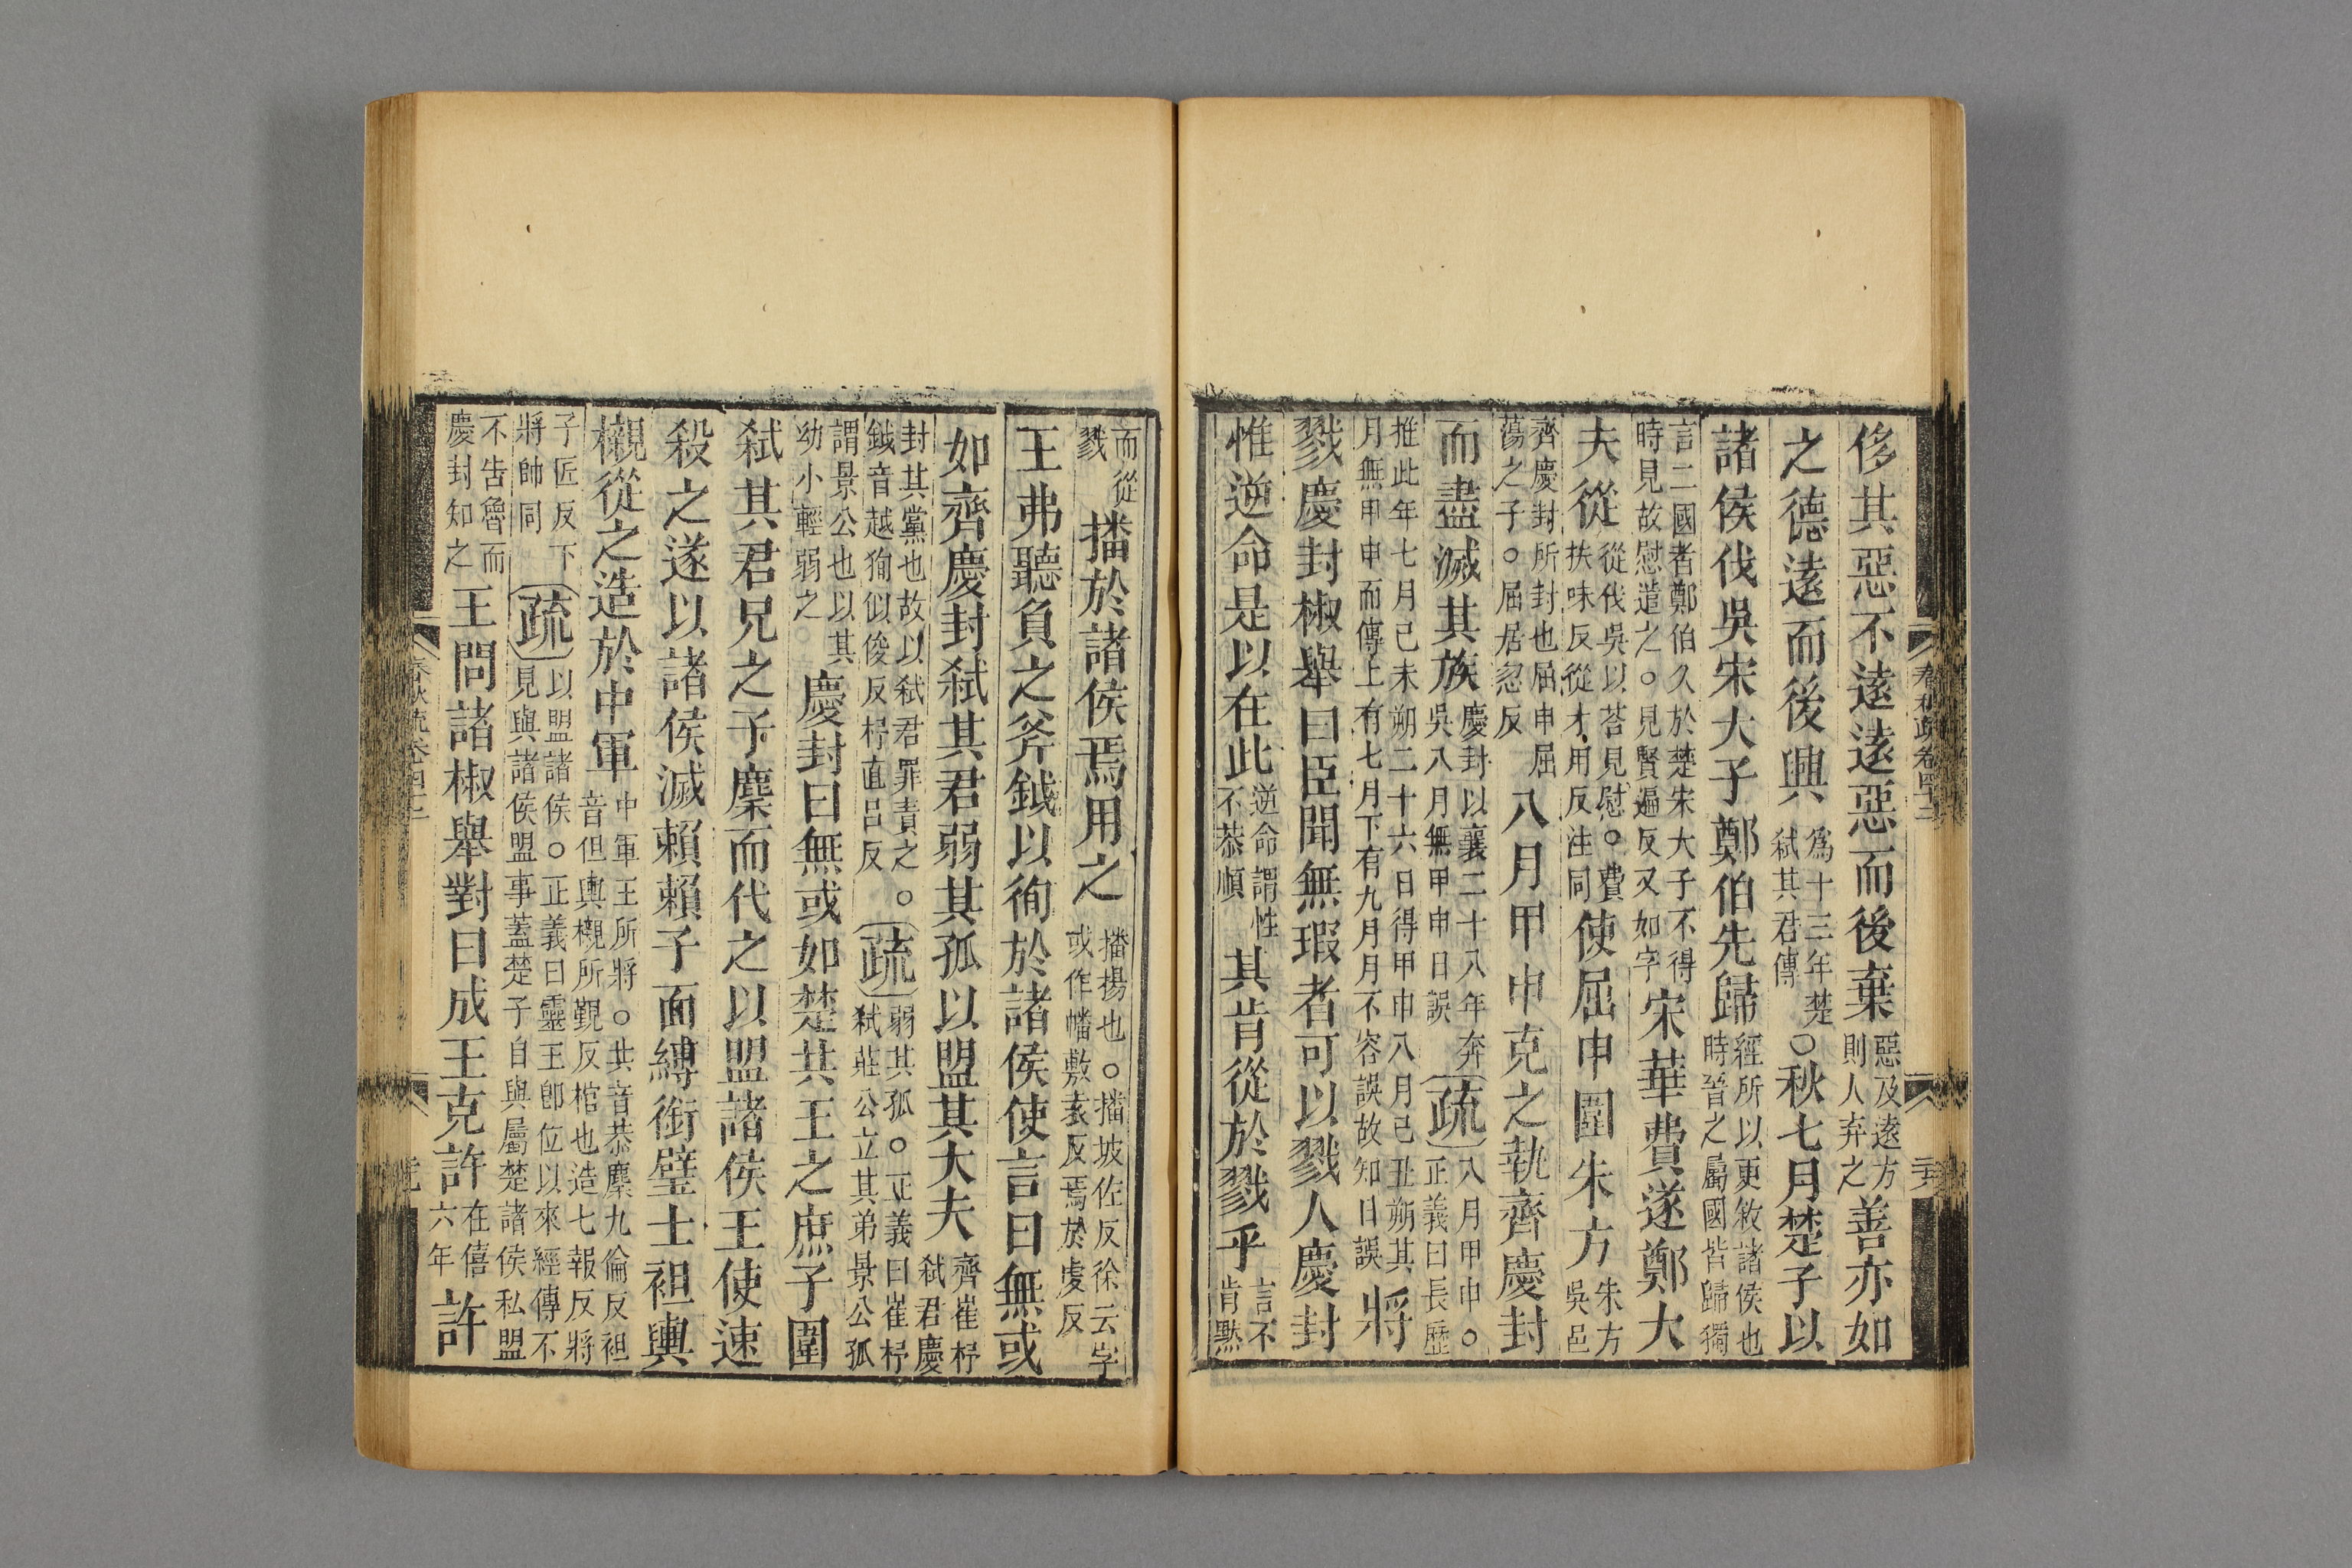 侈其惡不遠遠惡而後棄惡及遠方則人弃之善亦如
之德遠而後興爲十三年楚弑其君傳○秋七月楚子以
諸侯伐吳宋大子鄭伯先歸經所以更敘諸侯也時晉之屬國皆歸獨
言二國者鄭伯久於楚宋大子不得時見故慰遣之○見賢遍反又如字宋華費遂鄭大
夫從從伐吳以荅見慰○費扶味反從才用反注同使屈申圍朱方朱方吳邑
齊慶封所封也屈申屈蕩之子○屈居忽反八月甲申克之執齊慶封
而盡滅其族慶封以襄二十八年奔吳八月無甲申日誤疏八月甲申○正義曰長歷
推此年七月己未朔二十六日得甲申八月己丑朔其月無甲申而傳上有七月下有九月月不容誤故知日誤將
戮慶封椒舉曰臣聞無瑕者可以戮人慶封
惟逆命是以在此逆命謂性不恭順其肯從於戮乎言不肯默
而從戮播於諸侯焉用之播揚也○播坡佐反徐云字或作幡敷袁反焉於虔反
王弗聽負之斧鉞以徇於諸侯使言曰無或
如齊慶封弑其君弱其孤以盟其大夫齊崔杼弑君慶
封其黨也故以弑君罪責之○鉞音越徇似俊反杼直呂反疏弱其孤○正義曰崔杼弑莊公立其弟景公孤
謂景公也以其幼小輕弱之慶封曰無或如楚共王之庶子圍
弑其君兄之子麇而代之以盟諸侯王使速
殺之遂以諸侯滅賴賴子面縛銜璧士袒輿
櫬從之造於中軍中軍王所將○共音恭麇九倫反袒音但輿櫬所覲反棺也造七報反將
子匠反下將帥同疏以盟諸侯○正義曰靈王卽位以來經傳不見與諸侯盟事蓋楚子自與屬楚諸侯私盟
不告魯而慶封知之王問諸椒舉對曰成王克許在僖六年許
春秋疏卷四十二